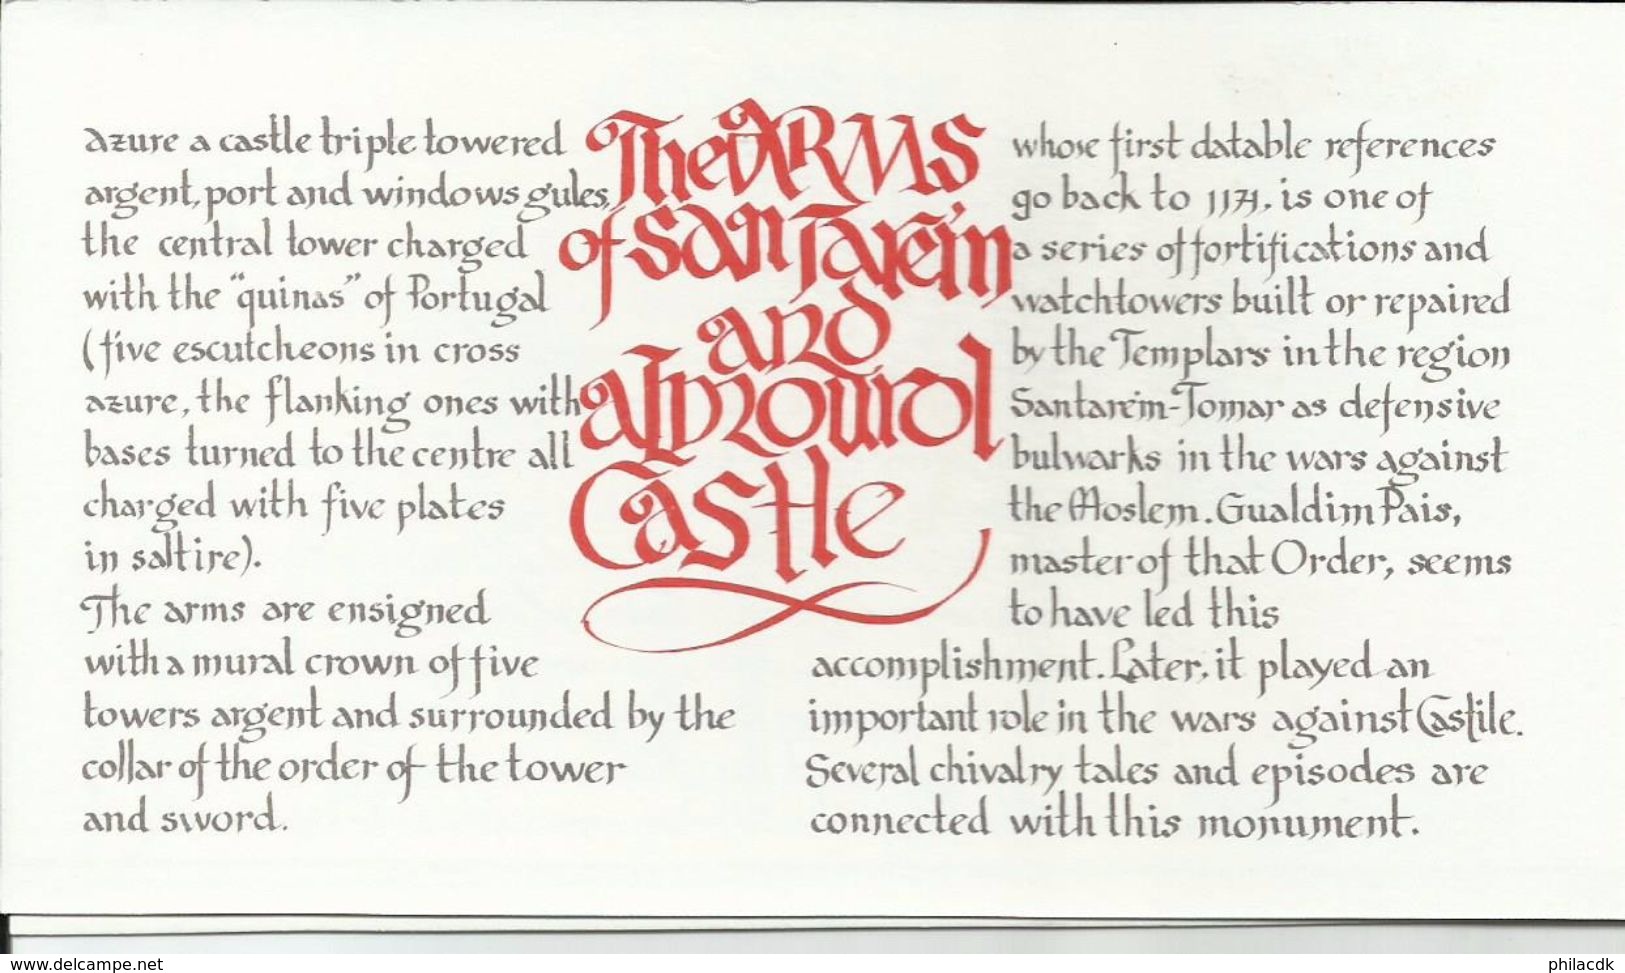 The Arms
of Santarém
and
Almourol
Castle
azure a castle triple towered
argent, port and windows gules,
the central tower charged
with the "quinas" of Portugal
(five escutcheons in cross
azure, the flanking ones with
bases turned to the centre all
charged with five plates
in saltire).
The arms are ensigned
with a mural crown of five
towers argent and surrounded by the
collar of the order of the tower
and sword.
whose first datable references
go back to 1171, is one of
a series of fortifications and
watchtowers built or repaired
by the Templars in the region
Santarém-Tomar as defensive
bulwarks in the wars against
the Moslem. Gualdim Pais,
master of that Order, seems
to have led this
accomplishment. Later, it played an
important role in the wars against Castile.
Several chivalry tales and episodes are
connected with this monument.
www.delcampe.net
philacdk